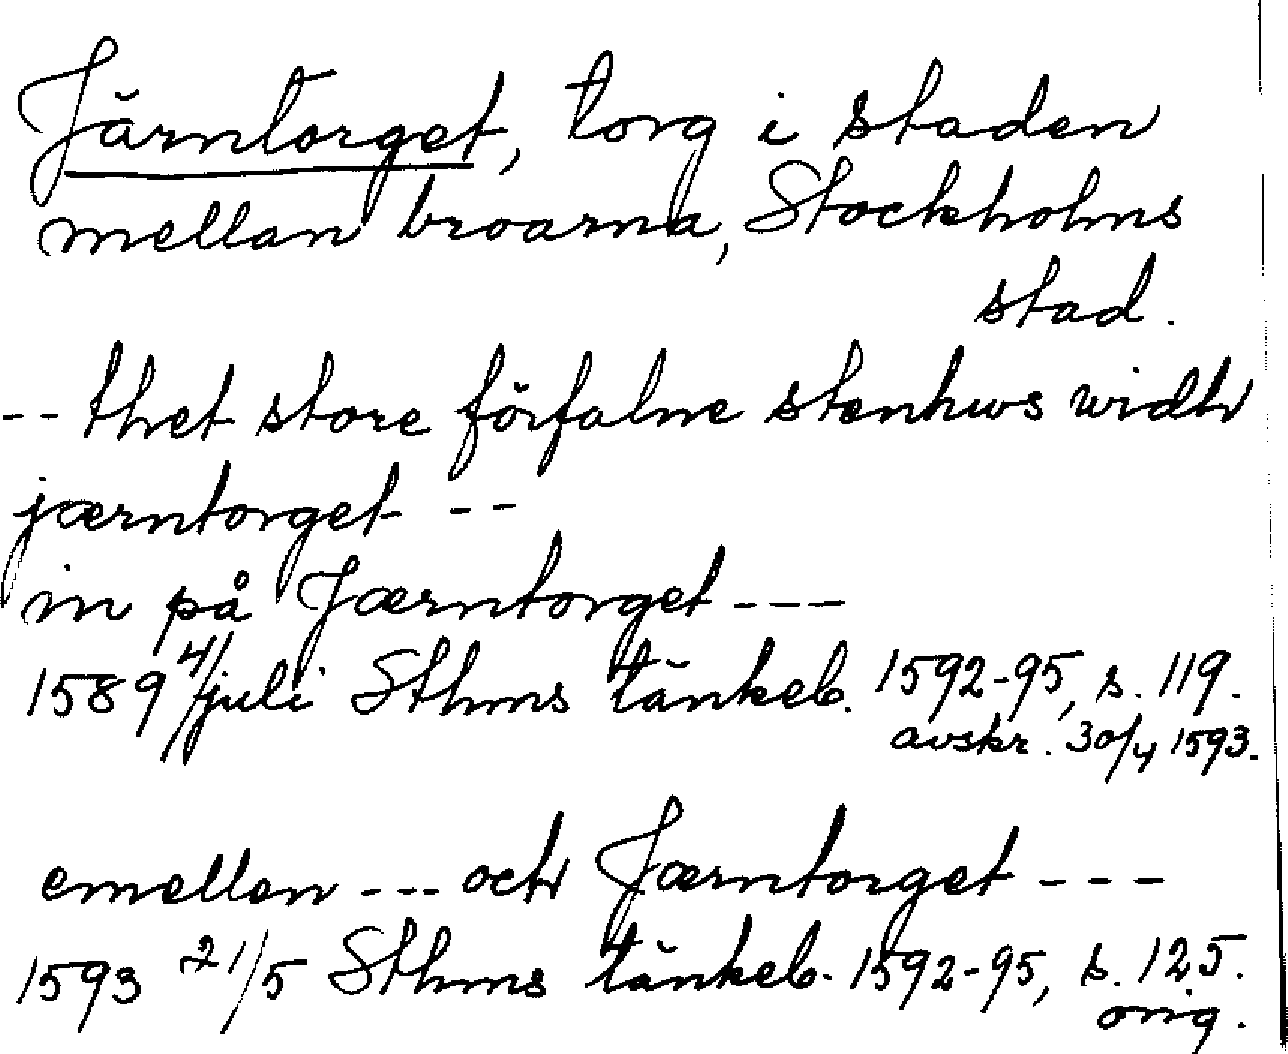 Järntorget, torg i staden
mellan broarna, Stockholms
stad.
-- thet store förfalne stenhws widh
jærntorget --
in på Jærntorget ---
1589 4/juli Sthms tänkeb. 1592-95, s. 119.
avskr. 30/4 1593.
emellen --- och Jærntorget ---
1593 21/5 Sthms tänkeb. 1592-95, s. 125.
orig.